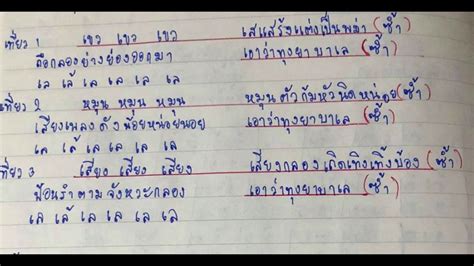 เที่ยว 1 เขว เขว เขว เสแสร้งแต่งเป็นพม่า (ซ้ำ)
ถือกลองย่างย่องออกมา เอาว่าทุงยาบาเล (ซ้ำ)
เล เล้ เล เล เล เล
เที่ยว 2 หมุน หมุน หมุน หมุนตัวก้มหัวนิดหน่อย (ซ้ำ)
เสียงเพลงดังน้อยหน่อยนอย เอาว่าทุงยาบาเล (ซ้ำ)
เล เล้ เล เล เล เล
เที่ยว 3 เสียง เสียง เสียง เสียงกลองเถิดเทิงเทิ้งบ้อง (ซ้ำ)
ฟ้อนรำตามจังหวะกลอง เอาว่าทุงยาบาเล (ซ้ำ)
เล เล้ เล เล เล เล